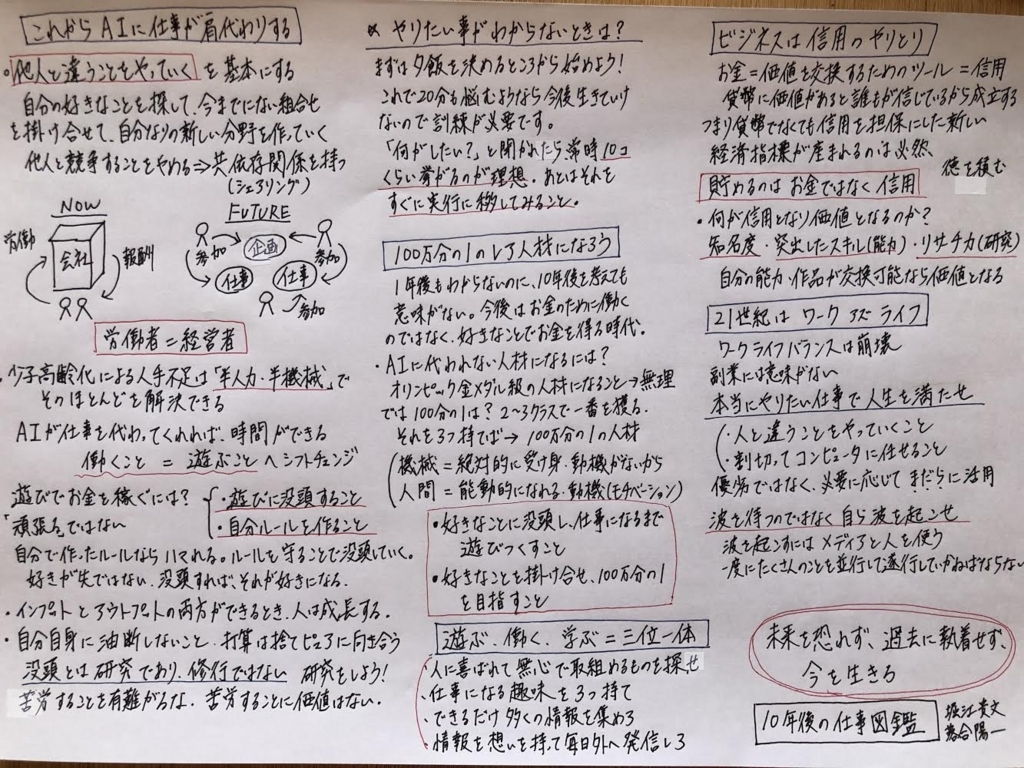 これからAIに仕事が肩代わりする
・他人と違うことをやっていくを基本にする
自分の好きなことを探して、今までにない組合せ
を掛け合せて、自分なりの新しい分野を作っていく
他人と競争することをやめる⇒共依存関係を持つ
(シェアリング)
NOW
労働
会社
報酬
FUTURE
参加
企画
参加
仕事
仕事
参加
労働者=経営者
・少子高齢化による人手不足は「半人力・半機械」で
そのほとんどを解決できる
AIが仕事を代わってくれれば、時間ができる
働くこと = 遊ぶこと へシフトチェンジ
遊びでお金を稼ぐには?
・遊びに没頭すること
頑張るではない
・自分ルールを作ること
自分で作ったルールならハマれる。ルールを守ることで没頭していく。
好きが先ではない、没頭すれば、それが好きになる。
・インプットとアウトプットの両方ができるとき、人は成長する。
・自分自身に油断しないこと、打算は捨てピュアに向き合う
没頭とは研究であり、修行ではない 研究をしよう!
苦労することを有難がるな、苦労することに価値はない。
* やりたい事がわからないときは?
まずは夕飯を決めるところから始めよう!
これで20分も悩むようなら今後生きていけ
ないので訓練が必要です。
「何がしたい?」と聞かれたら、常時10コ
くらい挙がるのが理想。あとはそれを
すぐに実行に移してみること。
100万分の1のレア人材になろう
1年後もわからないのに、10年後を考えても
意味がない。今後はお金のために働く
のではなく、好きなことでお金を得る時代。
・AIに代われない人材になるには?
オリンピック金メダル級の人材になること→無理
では100分の1は? 2~3クラスで一番を獲る。
それを3つ持てば→100万分の1の人材
機械=絶対的に受け身・動機がないから
人間=能動的になれる・動機(モチベーション)
・好きなことに没頭し、仕事になるまで
遊びつくすこと
・好きなことを掛け合せ、100万分の1
を目指すこと
遊ぶ、働く、学ぶ=三位一体
人に喜ばれて無心で取組めるものを探せ
・仕事になる趣味を3つ持て
・できるだけ多くの情報を集めろ
・情報を想いを持って毎日外へ発信しろ
ビジネスは信用のやりとり
お金=価値を交換するためのツール=信用
貨幣に価値があると誰もが信じているから成立する
つまり貨幣でなくても信用を担保にした新しい
経済指標が産まれるのは必然
徳を積む
貯めるのはお金ではなく信用
・何が信用となり価値となるのか?
知名度・突出したスキル(能力)・リサーチ力(研究)
自分の能力・作品が交換可能なら価値となる
21世紀はワークアズライフ
ワークライフバランスは崩壊
副業には意味がない
本当にやりたい仕事で人生を満たせ
・人と違うことをやっていくこと
・割切ってコンピュータに任せること
優劣ではなく、必要に応じてまだらに活用
波を待つのではなく自ら波を起こせ
波を起こすにはメディアと人を使う
一度にたくさんのことを並行して遂行していかねばならない
未来を恐れず、過去に執着せず、
今を生きる
10年後の仕事図鑑
堀江貴文
落合陽一